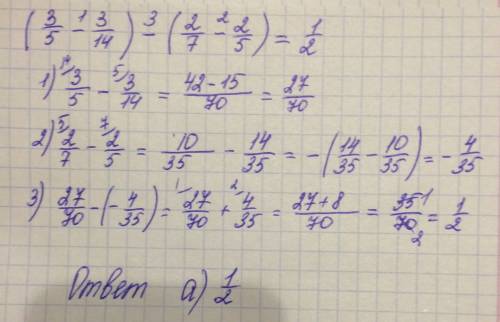 (3/5 -¹ 3/14) -³ (2/7 -² 2/5) = 1/2
1) ¹⁴⁄3/5 - ⁵⁄3/14 = (42-15)/70 = 27/70
2) ⁵⁄2/7 - ⁷⁄2/5 = 10/35 - 14/35 = -(14/35 - 10/35) = -4/35
3) 27/70 - (-4/35) = ¹⁄27/70 + ²⁄4/35 = (27+8)/70 = 35¹/70₂ = 1/2
Ответ а) 1/2